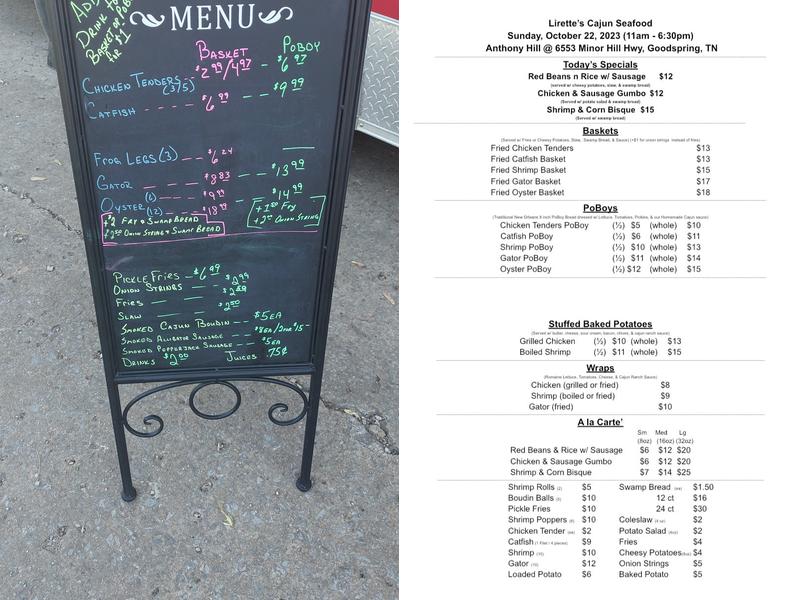 MENU
BASKET POBOY
CHICKEN TENDERS (3/5) $2.99/4.97 $6.97
CATFISH $6.99 $9.99
FROG LEGS (3) $6.24
GATOR $8.83 $13.99
OYSTER (6) $9.99 $14.99
(12) $18.99
+$2 FRY & SWAMP BREAD
+$2.50 ONION STRING & SWAMP BREAD
+1.50 FRY
+2.00 ONION STRING
PICKLE FRIES $6.49
ONION STRINGS $2.99
FRIES
SLAW $2.50
SMOKED CAJUN BOUDIN $5EA
SMOKED ALLIGATOR SAUSAGE $8EA/2FOR $15
SMOKED PEPPERJACK SAUSAGE $5EA
DRINKS $2.00 JUICES .75¢
Lirette's Cajun Seafood
Sunday, October 22, 2023 (11am - 6:30pm)
Anthony Hill @ 6553 Minor Hill Hwy, Goodspring, TN
Today's Specials
Red Beans n Rice w/ Sausage $12
(served w/ cheesy potatoes, slaw, & swamp bread)
Chicken & Sausage Gumbo $12
(Served w/ potato salad & swamp bread)
Shrimp & Corn Bisque $15
(Served w/ swamp bread)
Baskets
(Served w/ Fries or Cheesy Potatoes, Slaw, Swamp Bread, & Sauce) (+$1 for onion strings instead of fries)
Fried Chicken Tenders $13
Fried Catfish Basket $13
Fried Shrimp Basket $15
Fried Gator Basket $17
Fried Oyster Basket $18
PoBoys
(Traditional New Orleans 8 inch PoBoy Bread dressed w/ Lettuce, Tomatoes, Pickles, & our Homemade Cajun sauce)
Chicken Tenders PoBoy (½) $5 (whole) $10
Catfish PoBoy (½) $6 (whole) $11
Shrimp PoBoy (½) $10 (whole) $13
Gator PoBoy (½) $11 (whole) $14
Oyster PoBoy (½) $12 (whole) $15
Stuffed Baked Potatoes
(Served w/ butter, cheese, sour cream, bacon, chives, & cajun ranch sauce)
Grilled Chicken (½) $10 (whole) $13
Boiled Shrimp (½) $11 (whole) $15
Wraps
(Romaine Lettuce, Tomatoes, Cheese, & Cajun Ranch Sauce)
Chicken (grilled or fried) $8
Shrimp (boiled or fried) $9
Gator (fried) $10
A la Carte'
Sm Med Lg
(8oz) (16oz) (32oz)
Red Beans & Rice w/ Sausage $6 $12 $20
Chicken & Sausage Gumbo $6 $12 $20
Shrimp & Corn Bisque $7 $14 $25
Shrimp Rolls (2) $5 Swamp Bread (ea) $1.50
Boudin Balls (6) $10 12 ct $16
Pickle Fries $10 24 ct $30
Shrimp Poppers (6) $10 Coleslaw (4 oz) $2
Chicken Tender (ea) $2 Potato Salad (4oz) $2
Catfish (1 Filet / 4 pieces) $9 Fries $4
Shrimp (10) $10 Cheesy Potatoes (8oz) $4
Gator (10) $12 Onion Strings $5
Loaded Potato $6 Baked Potato $5